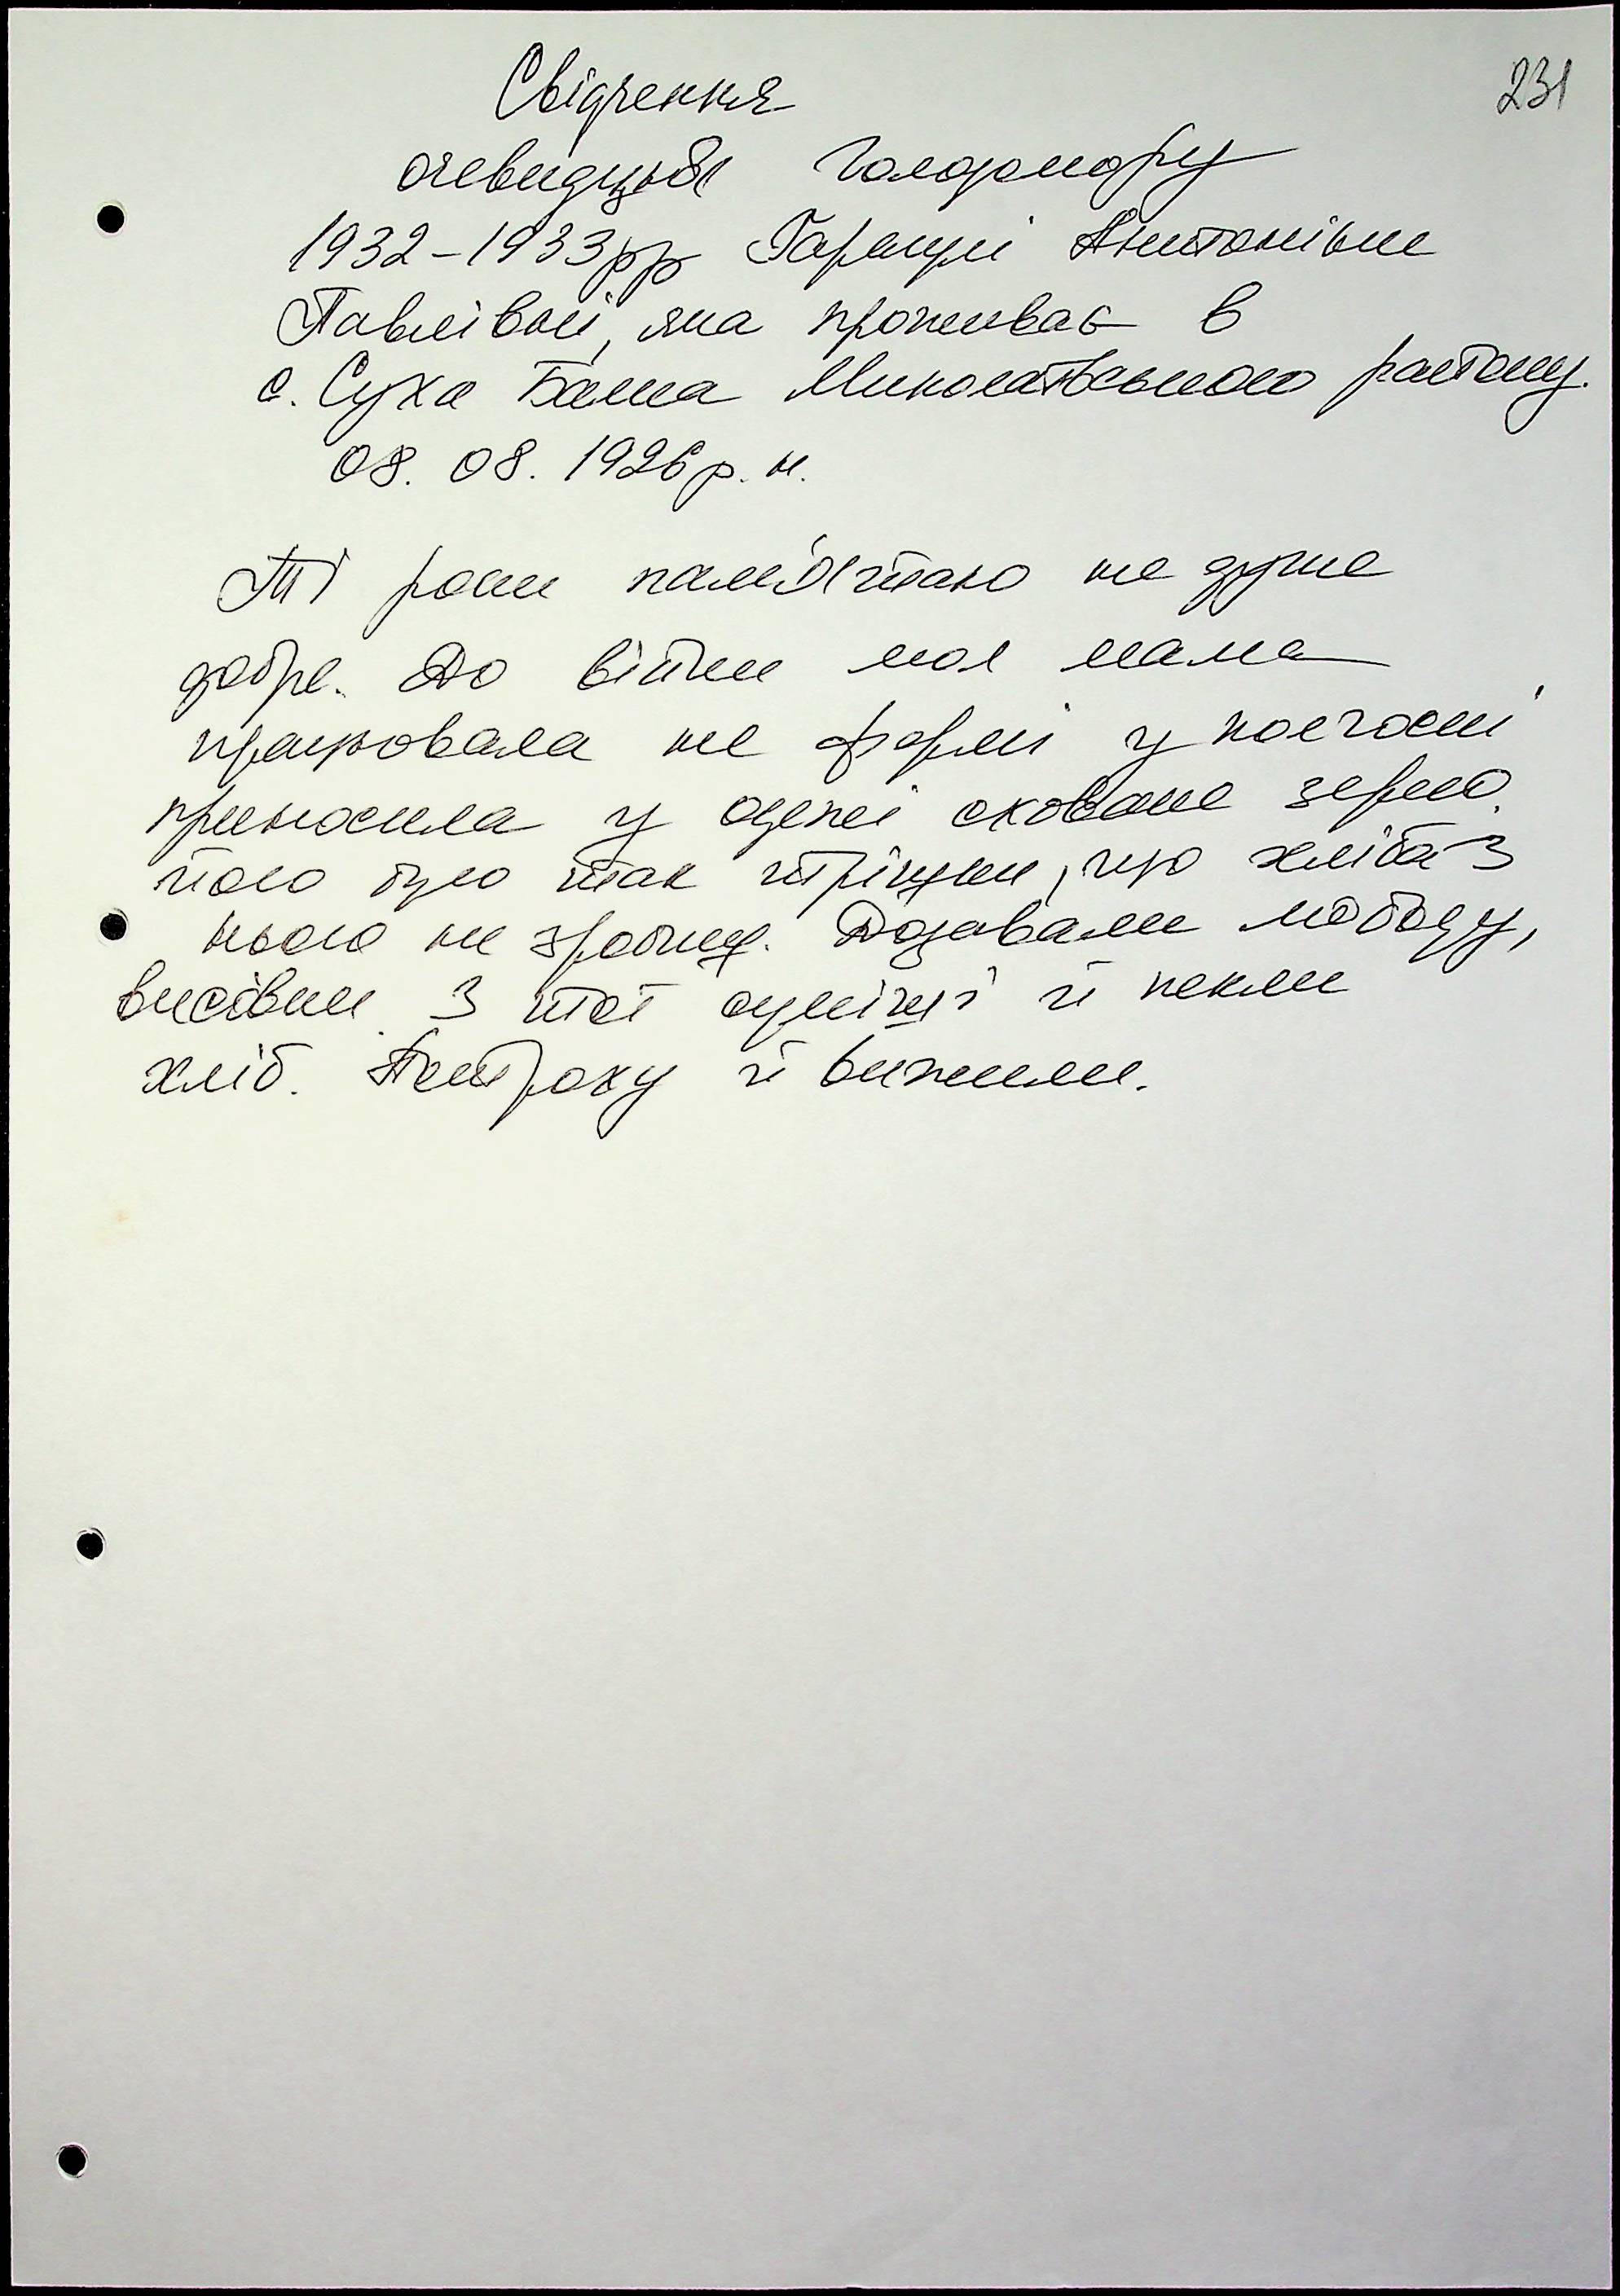 231
Свідчення
очевидця Голодомору
1932-1933рр Антоніни
Павлівни, яка проживає в
с. Суха Балка Миколаївського району.
08. 08. 1926 р. н.
Ті роки пам'ятаю не дуже
добре. До війни моя мама
працювала на фермі у колгоспі,
приносила у одежі сховане зерно.
Його було так трішки, що хліба з
нього не зробиш. Додавали лободу,
висівки. З тої суміші й пекли
хліб. Потроху й вижили.